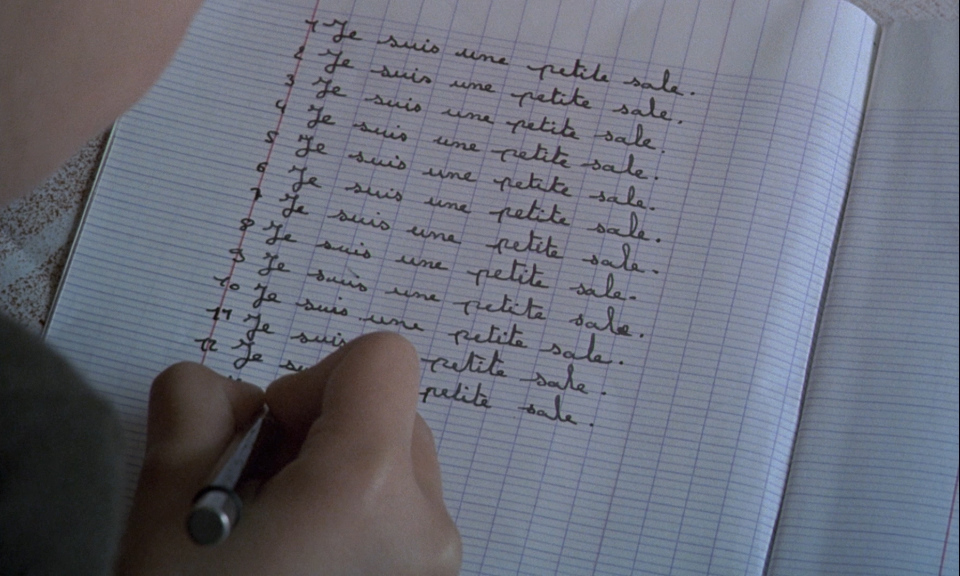 1 Je suis une petite sale.
2 Je suis une petite sale.
3 Je suis une petite sale.
4 Je suis une petite sale.
5 Je suis une petite sale.
6 Je suis une petite sale.
7 Je suis une petite sale.
8 Je suis une petite sale.
9 Je suis une petite sale.
10 Je suis une petite sale.
11 Je suis petite sale.
12 Je petite sale.